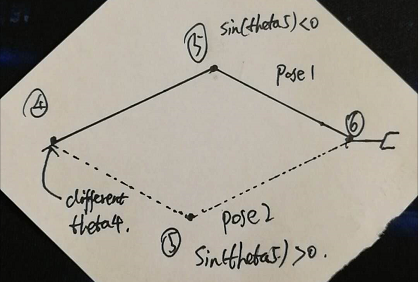 ⑤ sin(theta5)<0
pose1
④
⑥
different
theta4.
pose2
⑤
sin(theta5)>0.